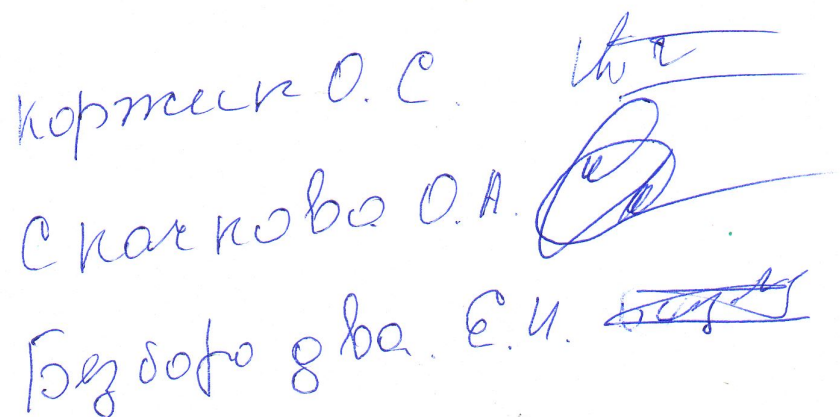 Коржик О. С.
Скачкова О. А.
Безбородова Е. И.